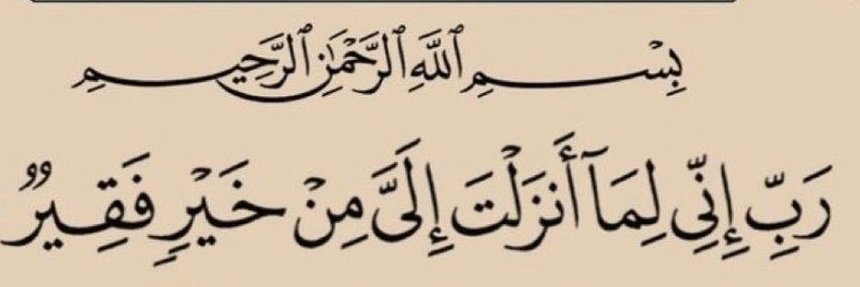 بِسْمِ ٱللَّهِ ٱلرَّحْمَٰنِ ٱلرَّحِيمِ
رَبِّ إِنِّي لِمَآ أَنزَلْتَ إِلَىَّ مِنْ خَيْرٍ فَقِيرٌ